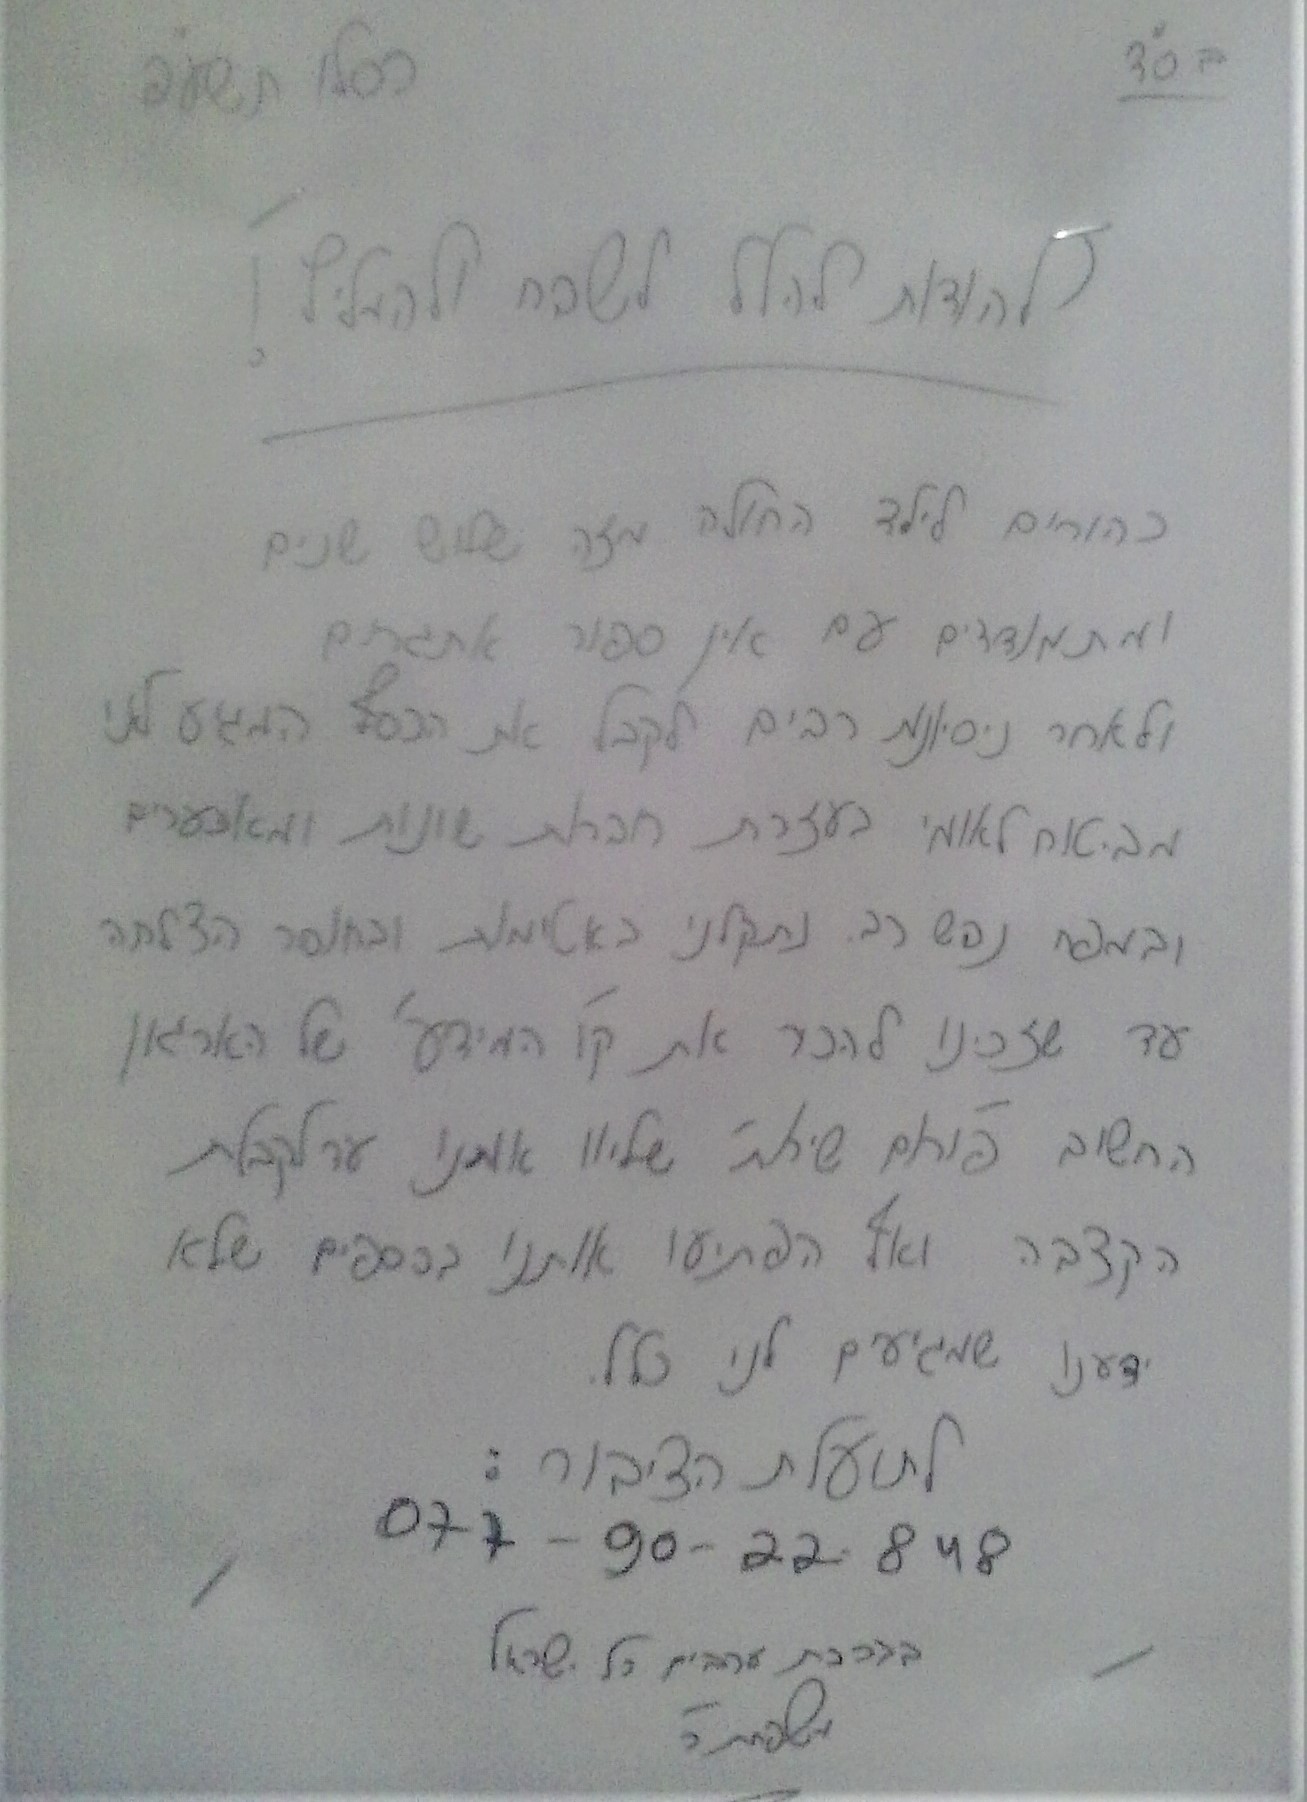 בס"ד
כסלו תשע"פ
"להודות להלל לשבח ולהמליץ"!
כהורים לילד החולה מזה שלוש שנים
ומתמודדים עם אין ספור אתגרים
ולאחר ניסיונות רבים לקבל את הכסף המגיע לנו
מביטוח לאומי בעזרת חברות שונות ומאכערים
ובמפח נפש רב. נתקלנו באטימות ובחוסר הצלחה
עד שזכינו להכיר את "קו המידע" של הארגון
החשוב "פורום שירות" שליוו אותנו עד לקבלת
הקצבה ואף הפתיעו אותנו בכספים שלא
ידענו שמגיעים לנו כלל.
לתועלת הציבור:
077-90-22-848
בברכת ערבים כל ישראל
משפחת כ'